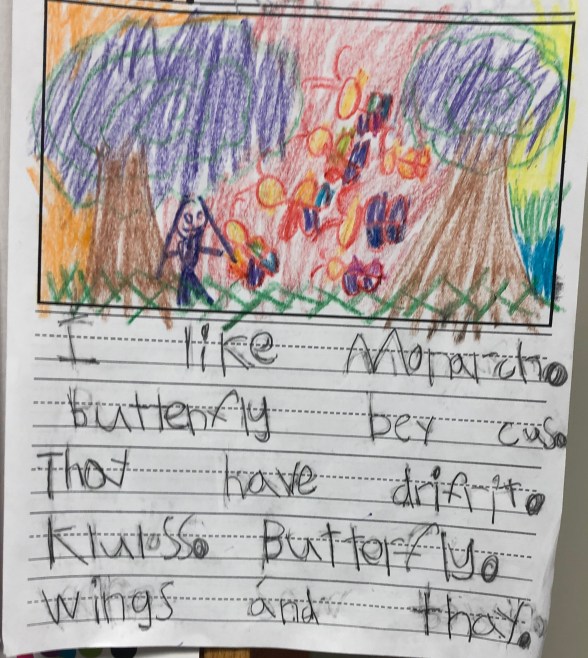 I like Monarch.
butterfly bey cuse
Thay have drifrit.
Kluloss. Butterfly.
wings and thay.